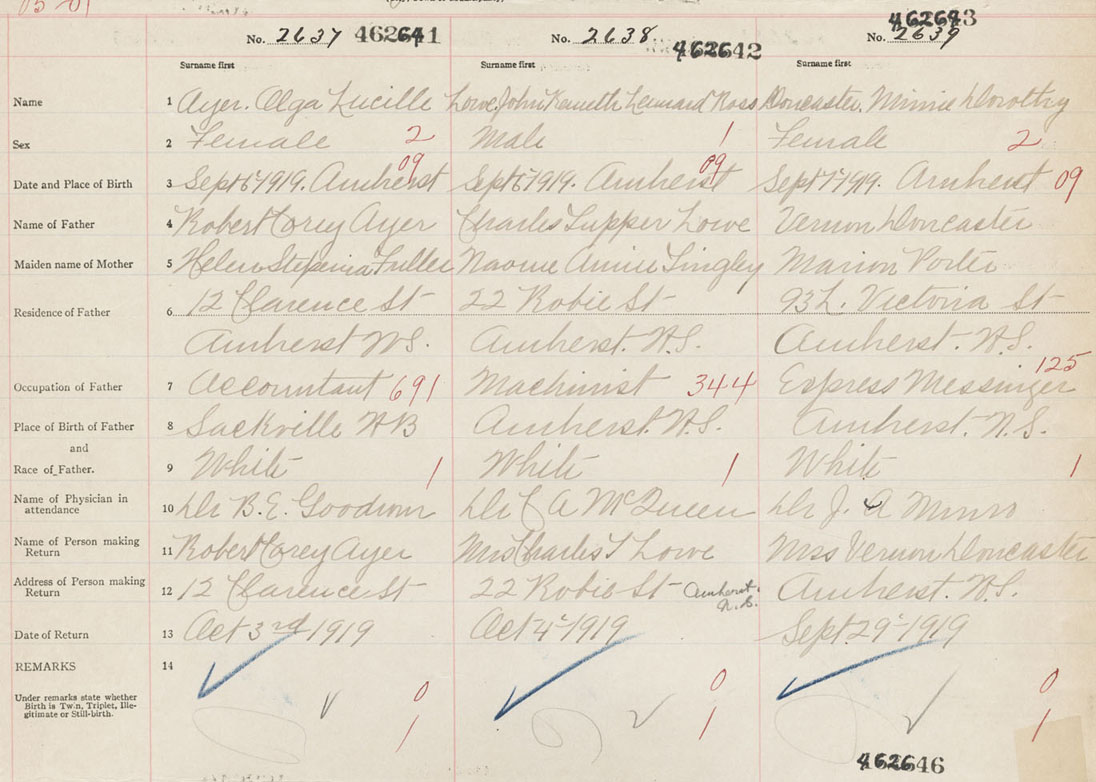 No. 2637 462641 No. 2638 462642 No. 2639 462643
Surname first Surname first Surname first
Name 1 Ayer. Olga Lucille Lowe, John Kenneth Lennard Ross Doncaster. Minnie Dorothy
Sex 2 Female 2 Male 1 Female 2
Date and Place of Birth 3 Sept 6 1919. Amherst 09 Sept 6 1919. Amherst 09 Sept 1 1919. Amherst 09
Name of Father 4 Robert Corey Ayer Charles Tupper Lowe Vernon Doncaster
Maiden name of Mother 5 Helen Fuller Annie Lingley Marion Porter
Residence of Father 6 12 Clarence St 22 Robie St 93 Victoria St
Amherst N.S. Amherst. N.S. Amherst. N.S.
Occupation of Father 7 Accountant 691 Machinist 344 Express Messinger 125
Place of Birth of Father 8 Sackville N B Amherst. N.S. Amherst. N.S.
and
Race of Father. 9 White 1 White 1 White 1
Name of Physician in attendance 10 Dr B.E. Goodwin Dr C A McQueen Dr J. A Munro
Name of Person making Return 11 Robert Corey Ayer Mrs Charles T Lowe Mrs Vernon Doncaster
Address of Person making Return 12 12 Clarence St 22 Robie St Amherst. N.S. Amherst. N.S.
Date of Return 13 Oct 3rd 1919 Oct 4 1919 Sept. 29 1919
REMARKS 14
Under remarks state whether 0 0 0
Birth is Twin, Triplet, Ille-
gitimate or Still-birth. 1 1 1
462646